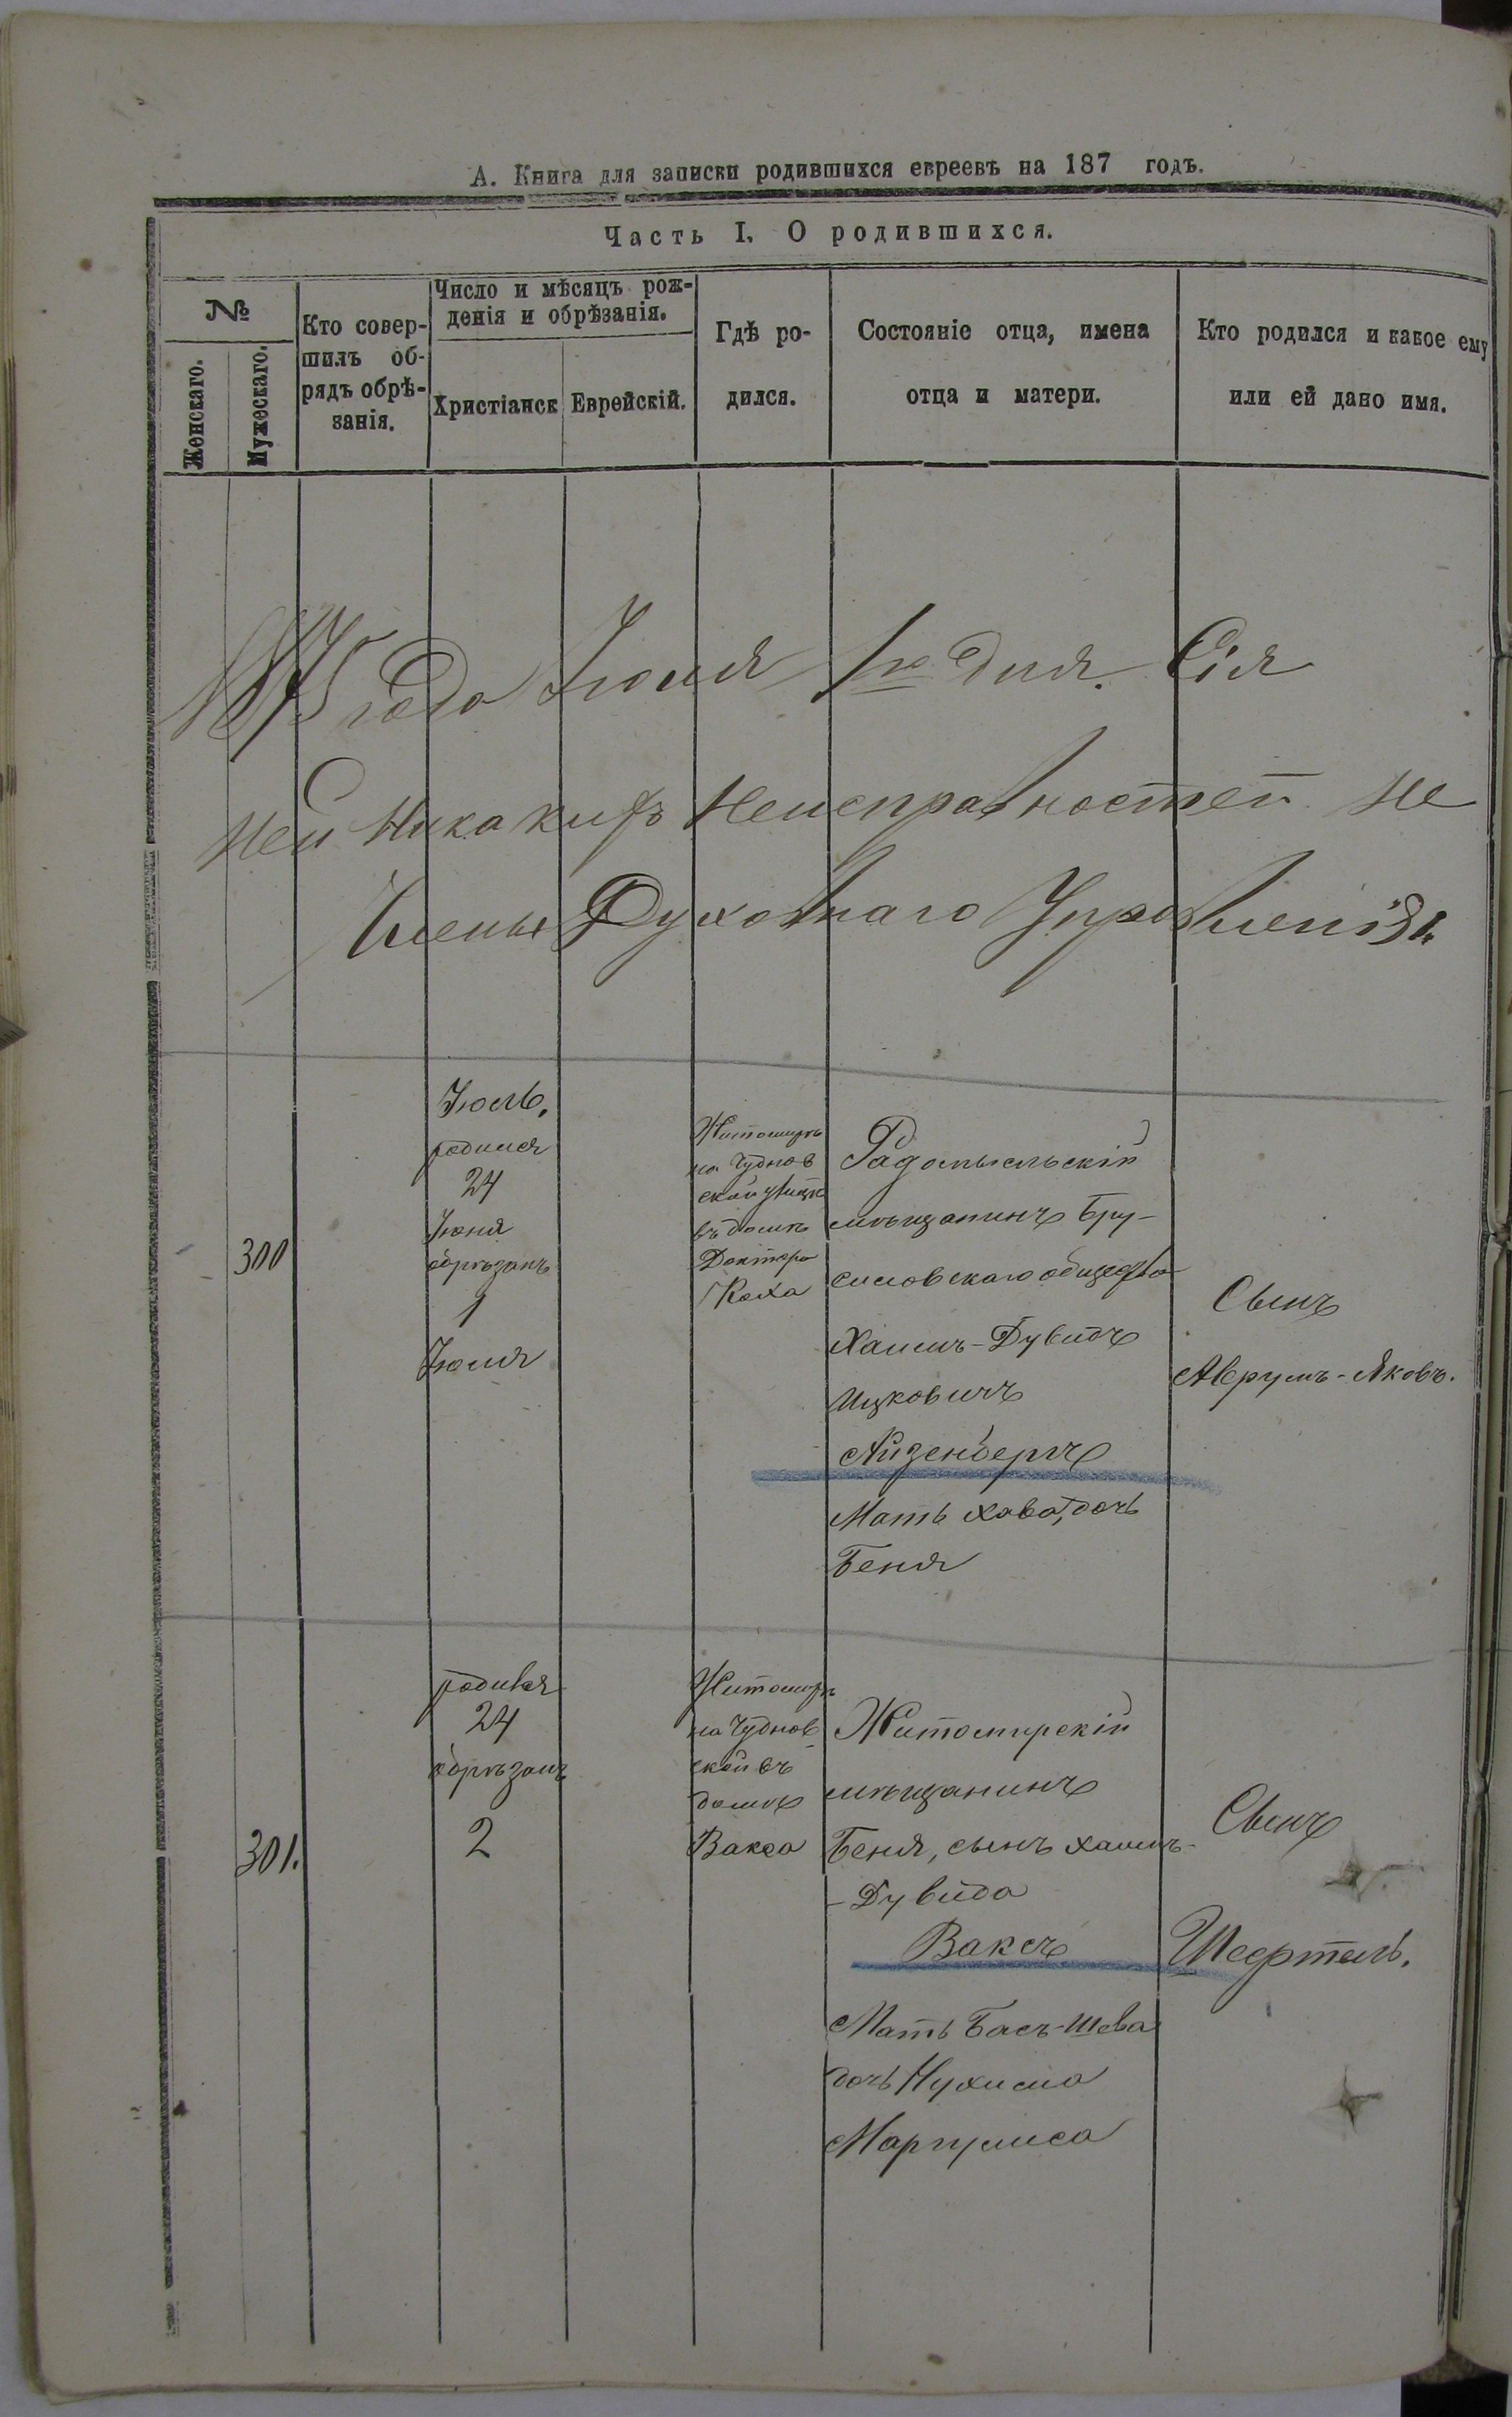 А. Книга для записки родившихся евреевъ на 187 годъ.
Часть I. О родившихся.
№
Женскаго.
Мужескаго.
Кто совер-
шилъ об-
рядъ обрѣ-
занія.
Число и мѣсяцъ рож-
денія и обрѣзанія.
Христіанск
Еврейскій.
Гдѣ ро-
дился.
Состояніе отца, имена
отца и матери.
Кто родился и какое ему
или ей дано имя.
1875 года Іюля 1го дня. Сія
ней никакихъ Неисправностей не
Члены Духовнаго Управленія
300
Іюль.
родился
24
Іюня
обрѣзанъ
1
Іюля
Житомиръ
на Чуднов
ской улицѣ
въ домѣ
Доктора
Коха
Радомысльскій
мѣщанинъ Бру-
силовскаго общества
Хаимъ-Дувидъ
Ицковичъ
Айзенбергъ
Мать Хава, дочь
Беня
Сынъ
Аврумъ-Яковъ.
301.
родился
24
обрѣзанъ
2
Житомиръ
на Чуднов
ской въ
домѣ
Вакса
Житомирскій
мѣщанинъ
Беня, сынъ Хаимъ-
-Дувида
Ваксъ
Мать Бась-Шева
дочь Нухима
Маргулиса
Сынъ
Шефтель.